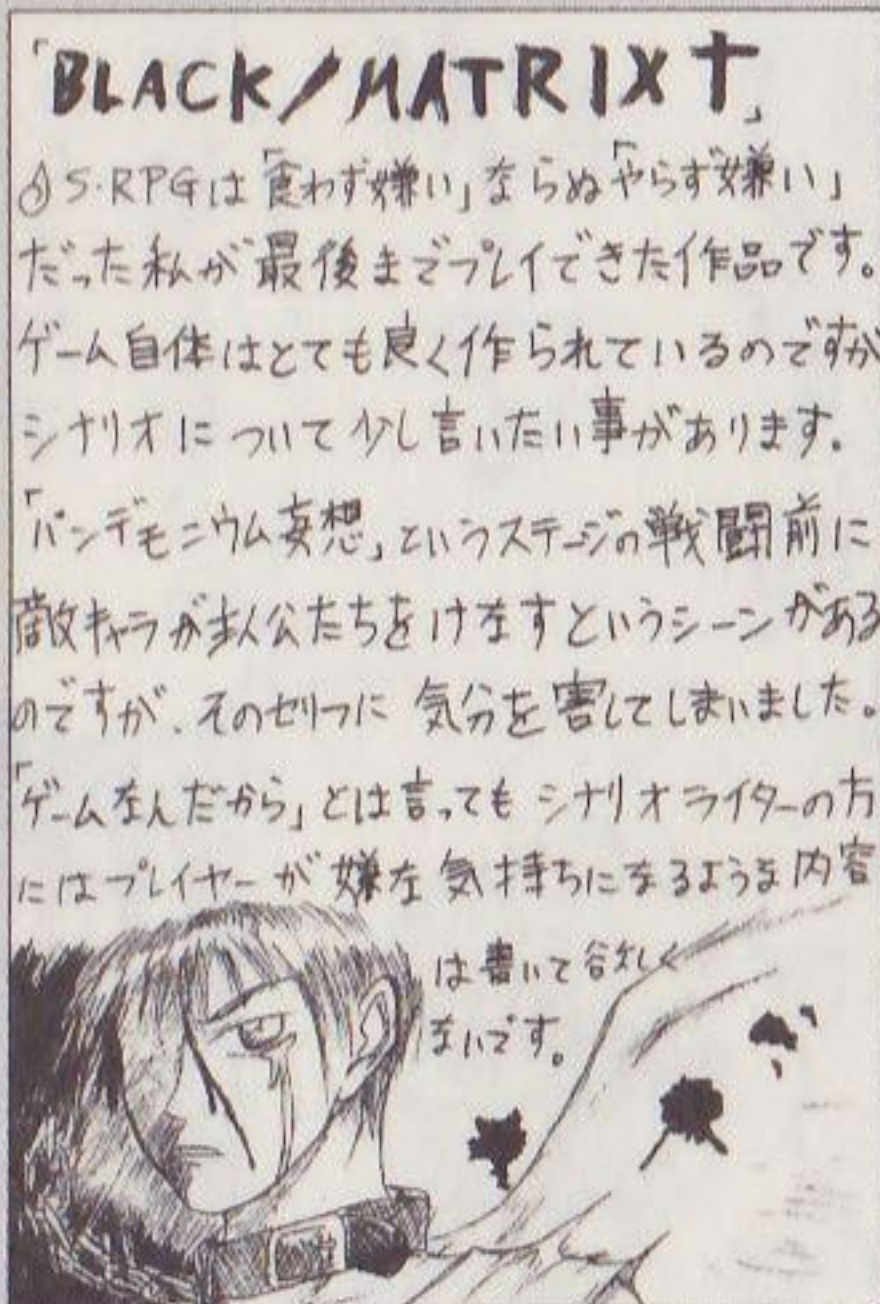 「BLACK/MATRIX†」
S・RPGは「食わず嫌い」ならぬ「やらず嫌い」
だった私が最後までプレイできた作品です。
ゲーム自体はとても良く作られているのですが
シナリオについて少し言いたい事があります。
「パンデモニウム妄想」というステージの戦闘前に
敵キャラが主人公たちをけなすというシーンがある
のですが、そのセリフに気分を害してしまいました。
「ゲームなんだから」とは言ってもシナリオライターの方
にはプレイヤーが嫌な気持ちになるような内容
は書いて欲しく
ないです。